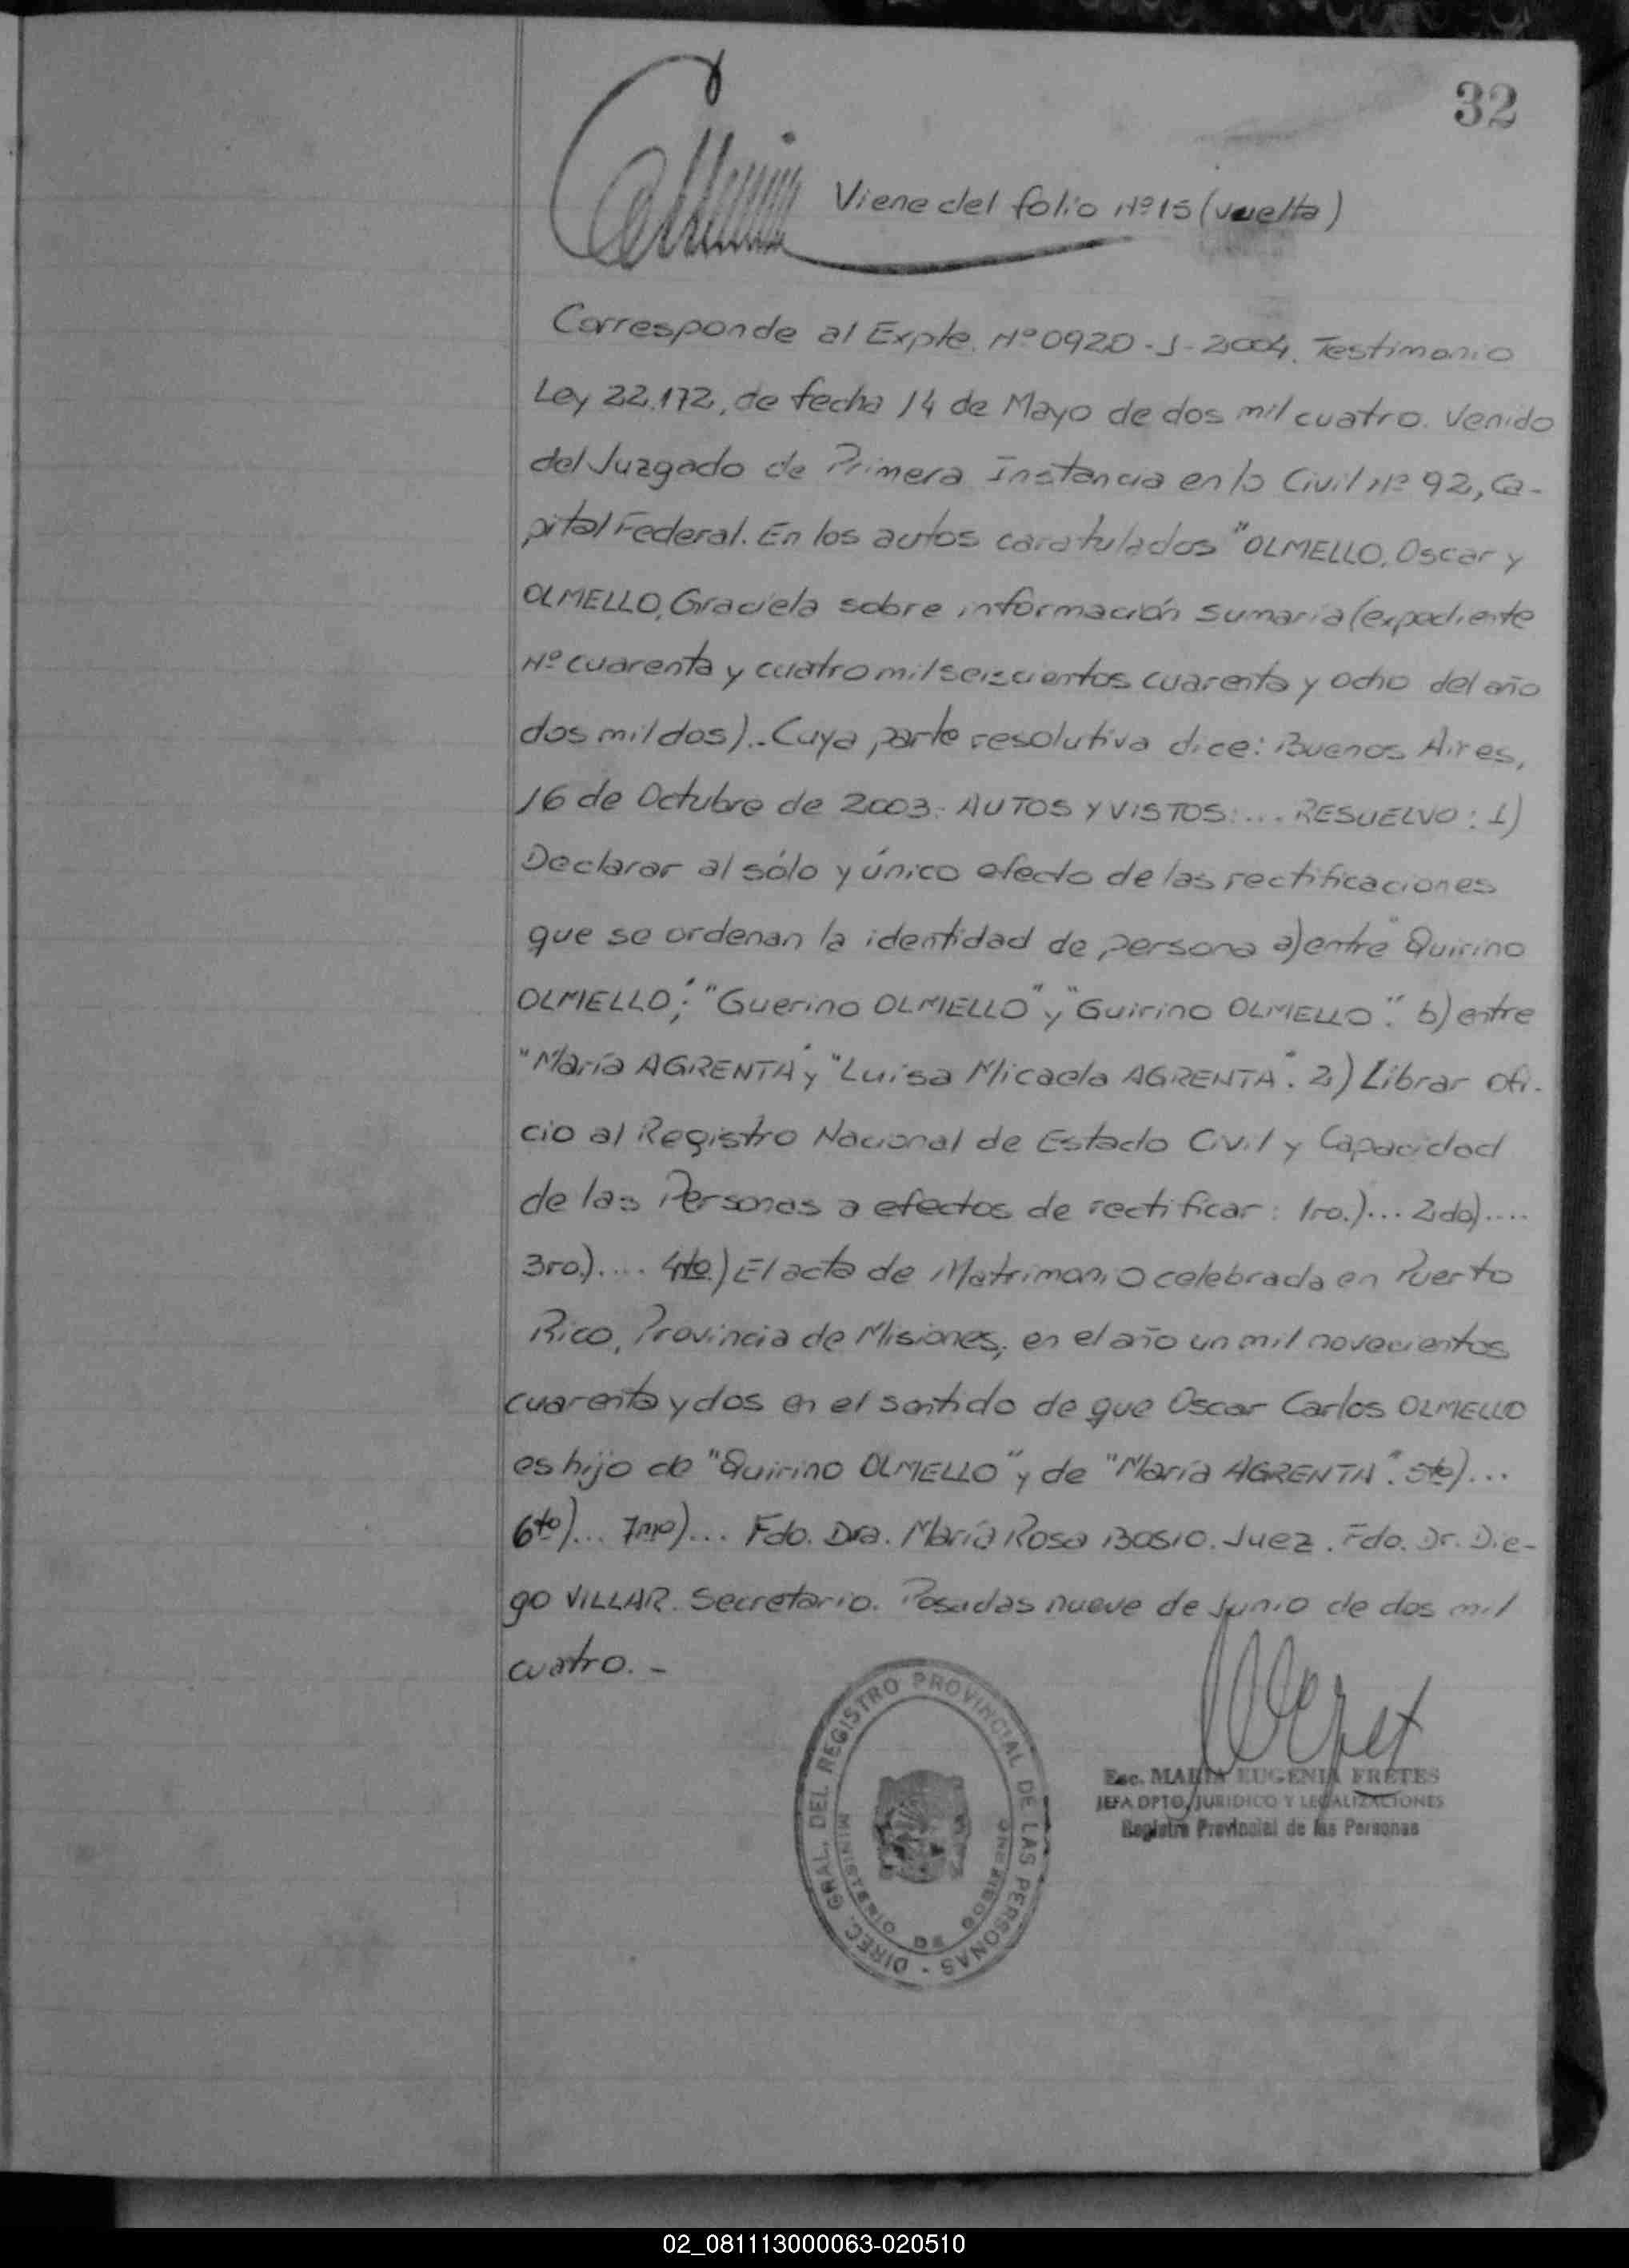 32
Viene del folio Nº 15 (vuelta)
Corresponde al Expte. Nº 0920-J-2004. Testimonio
Ley 22.172, de fecha 14 de Mayo de dos mil cuatro. Venido
del Juzgado de Primera Instancia en lo Civil Nº 92, Ca-
pital Federal. En los autos caratulados "OLMELLO, Oscar y
OLMELLO, Graciela sobre información sumaria (expediente
Nº cuarenta y cuatro mil seiscientos cuarenta y ocho del año
dos mil dos).- Cuya parte resolutiva dice: Buenos Aires,
16 de Octubre de 2003.- AUTOS Y VISTOS:... RESUELVO: 1)
Declarar al sólo y único efecto de las rectificaciones
que se ordenan la identidad de persona a) entre "Quirino
OLMELLO", "Guerino OLMELLO" y "Guirino OLMELLO". b) entre
"María AGRENTA" y "Luisa Micaela AGRENTA". 2) Librar ofi-
cio al Registro Nacional de Estado Civil y Capacidad
de las Personas a efectos de rectificar: 1ro.)... 2do)....
3ro.).... 4to.) El acta de Matrimonio celebrada en Puerto
Rico, Provincia de Misiones, en el año un mil novecientos
cuarenta y dos en el sentido de que Oscar Carlos OLMELLO
es hijo de "Quirino OLMELLO" y de "María AGRENTA". 5to)...
6to)... 7mo)... Fdo. Dra. María Rosa BOSIO. Juez. Fdo. Dr. Die-
go VILLAR. Secretario. Posadas nueve de junio de dos mil
cuatro.-
DIREC. GRAL. DEL REGISTRO PROVINCIAL DE LAS PERSONAS -
MINISTERIO DE GOBIERNO
Esc. MARIA EUGENIA FRETES
JEFA DPTO. JURIDICO Y LEGALIZACIONES
Registro Provincial de las Personas
02_081113000063-020510